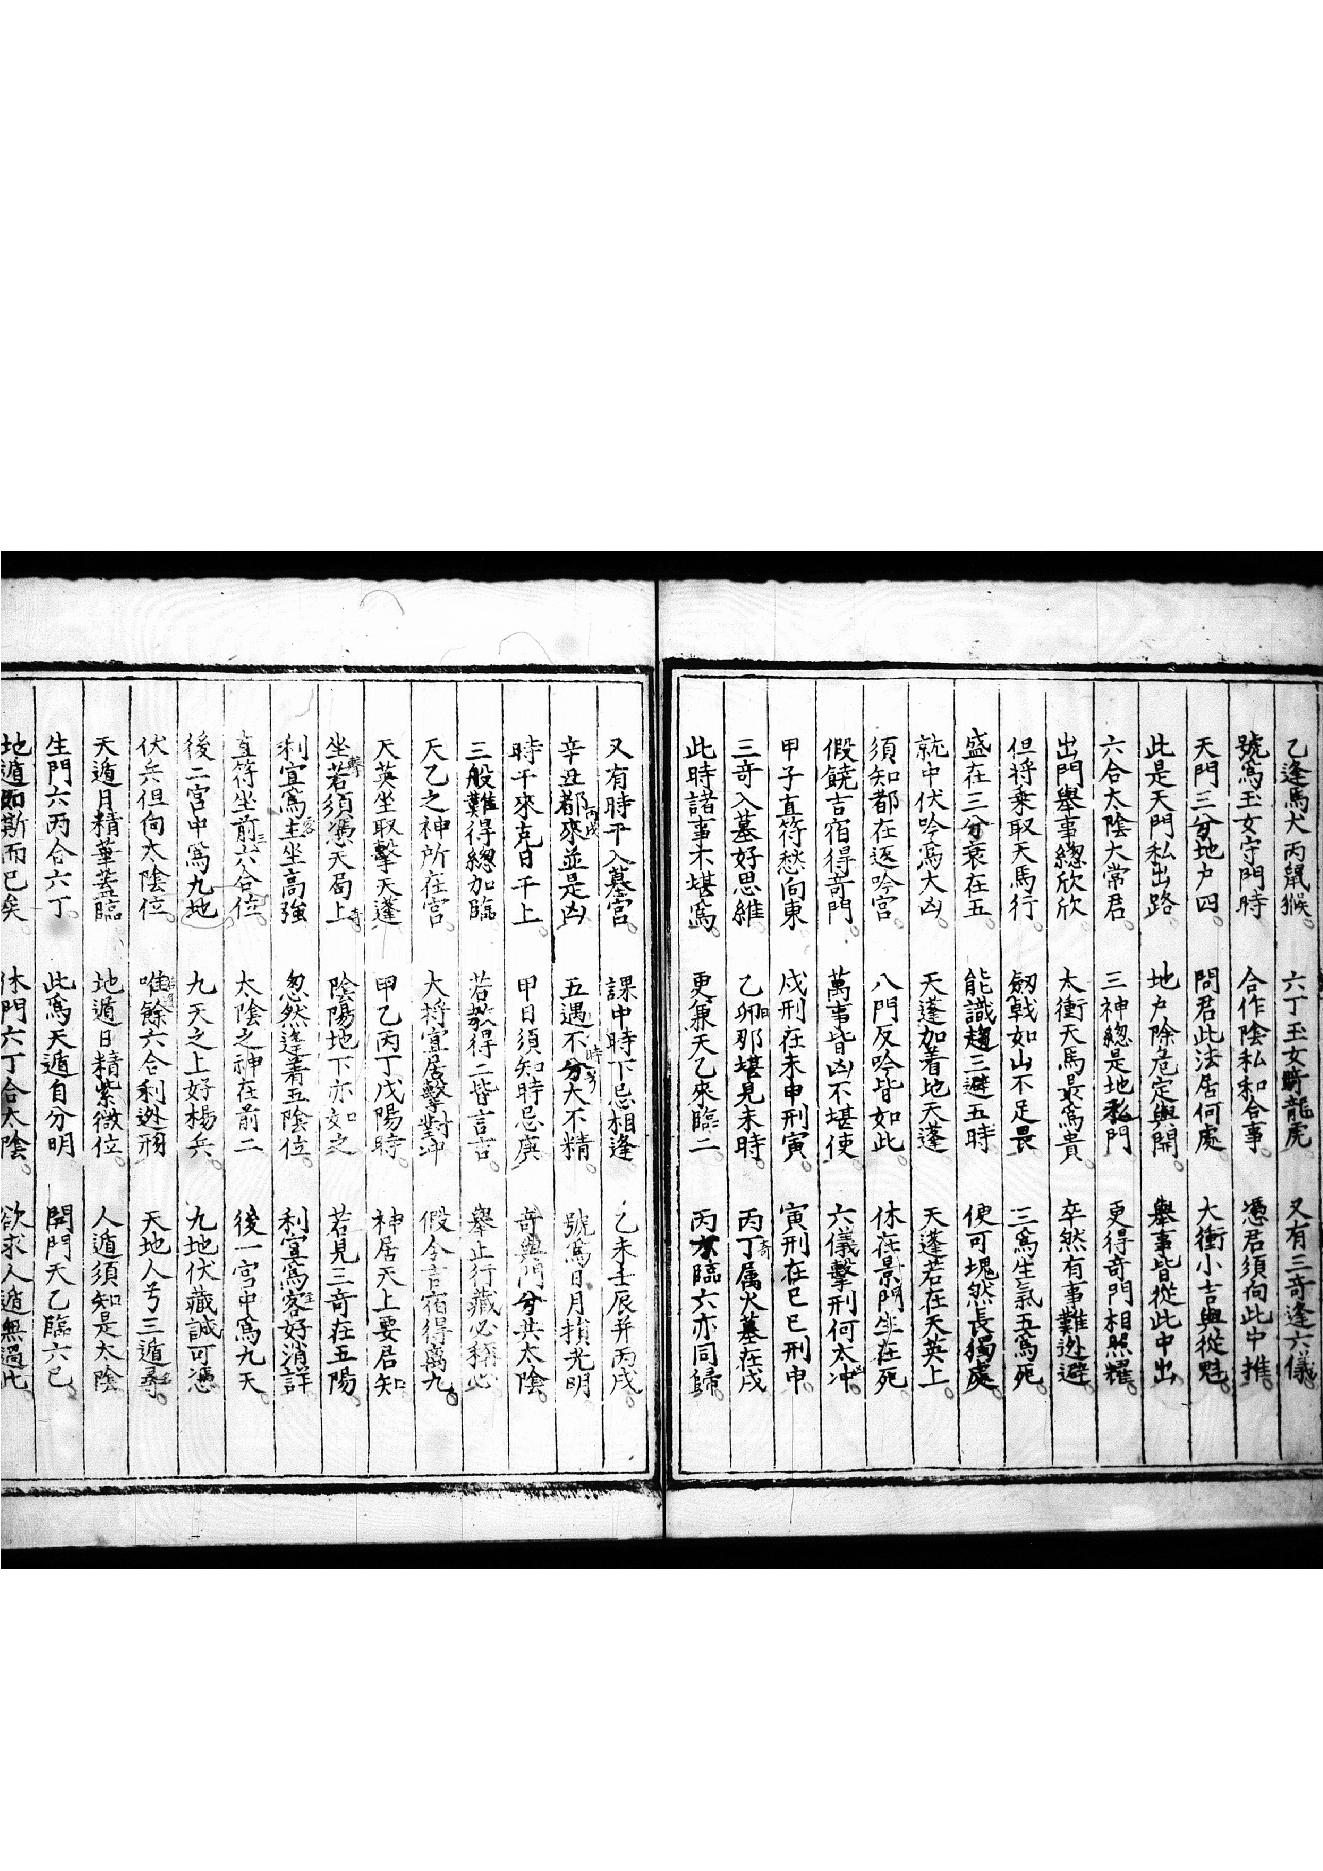 乙逢馬犬丙鼠猴。六丁玉女騎龍虎。又有三奇逢六儀
號爲玉女守門時 合作陰私和合事。憑君須向此中推。
天門三分地户四。問君此法居何處。大衝小吉與從魁。
此是天門私出路。地户除危定與開。舉事皆從此中出
六合太陰大常君。三神總是地私門 更得奇門相照耀。
出門舉事總欣欣 太衝天馬最爲貴。卒然有事難逃避。
但将乗取天馬行。劔戟如山不足畏 三爲生氣五爲死。
盛在三分衰在五。能識趨三避五時 便可塊然長獨處。
就中伏吟爲大凶。天蓬加着地天蓬 天蓬若在天英上。
須知都在返吟宮。八門反吟皆如此 休在景門生在死
假饒吉宿得奇門。萬事皆凶不堪使 六儀擊刑何太冲。
甲子直符愁向東 戊刑在未申刑寅。寅刑在巳巳刑申
三奇入墓好思維 乙卯那堪見未時。丙丁属火墓在戌
此時諸事不堪爲。更兼天乙來臨二 丙臨六亦同歸。
又有時干入墓宮。課中時下忌相逢 乙未壬辰并丙戌。
辛丑都來並是凶 五遇不分大不精。號爲日月損光明
時干來克日干上。甲日須知時忌庚 奇與門兮共太陰。
三般難得總加臨 若教得二皆言吉。舉止行藏必稱心
天乙之神所在宮。大将宜居擊對冲 假令吉宿得离九。
天英坐取擊天蓬 甲乙丙丁戊陽時。神居天上要君知
坐若須憑天局上 陰陽地下亦如之 若見三奇在五陽
利宜爲主坐高強 忽然逢着五陰位。利宜爲客好消詳
直符坐前六合位。太陰之神在前二 後一宮中爲九天。
後二宮中爲九地 九天之上好楊兵。九地伏藏誠可憑
伏兵但向太陰位。唯餘六合利逃刑 天地人兮三遁尋。
天遁月精華蓋臨 地遁日精紫微位。人遁須知是太陰
生門六丙合六丁。此爲天遁自分明 開門天乙臨六己。
地遁如斯而已矣。休門六丁合太陰。欲求人遁無過此。